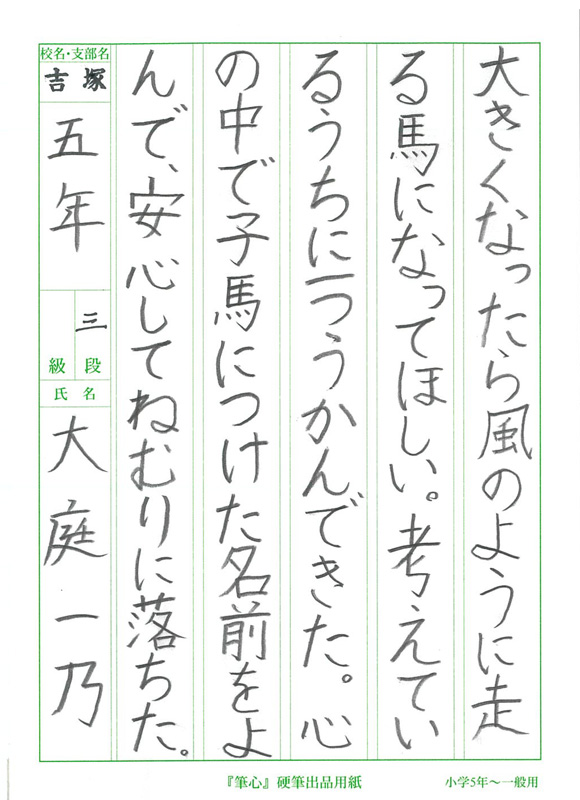 大きくなったら風のように走
る馬になってほしい。考えてい
るうちに一つうかんできた。心
の中で子馬につけた名前をよ
んで、安心してねむりに落ちた。
校名・支部名
吉塚
五年
三段
級
氏名
大庭一乃
『筆心』硬筆出品用紙
小学5年〜一般用